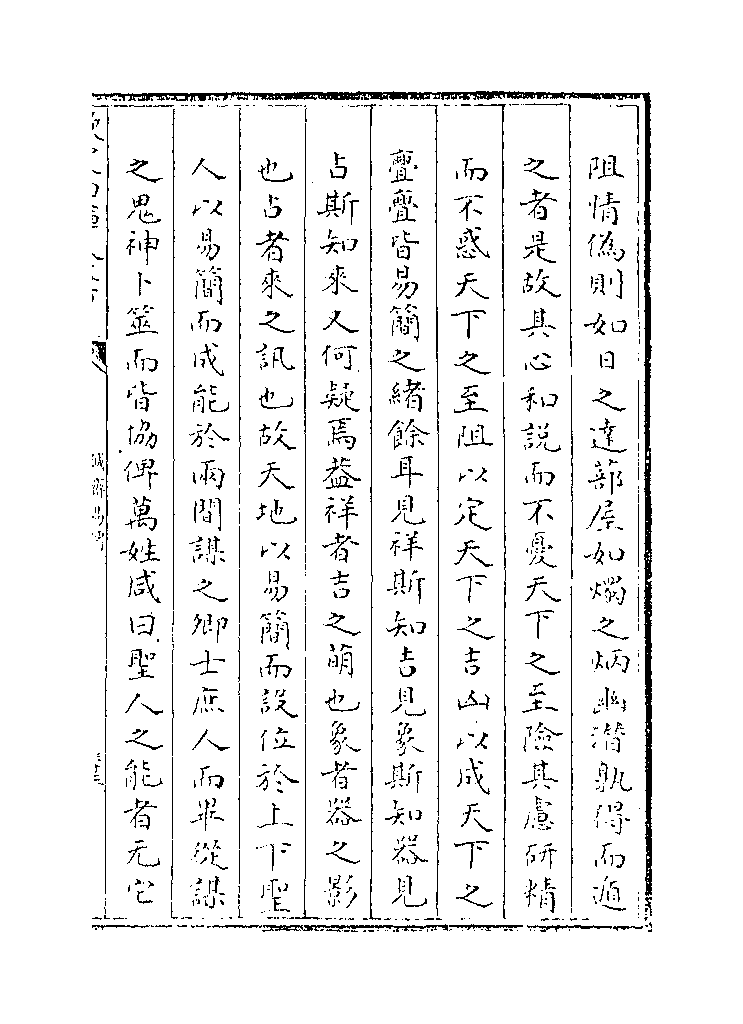 阻情偽則如日之達蔀屋如燭之炳幽潛孰得而遁
之者是故其心和説而不憂天下之至險其慮研精
而不惑天下之至阻以定天下之吉凶以成天下之
亹亹皆易簡之緒餘耳見祥斯知吉見象斯知器見
占斯知來又何疑焉葢祥者吉之萌也象者器之影
也占者來之訊也故天地以易簡而設位於上下聖
人以易簡而成能於兩間謀之卿士庶人而畢從謀
之鬼神卜筮而皆協俾萬姓咸曰聖人之能者无它
誠齋易傳